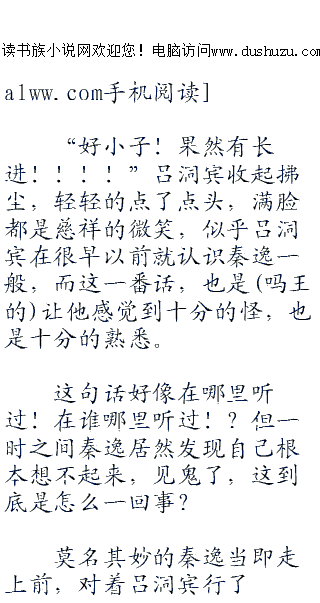 读书族小说网欢迎您！电脑访问www.dushuzu.com
alww.com手机阅读]
“好小子！果然有长
进！！！！”吕洞宾收起拂
尘，轻轻的点了点头，满脸
都是慈祥的微笑，似乎吕洞
宾在很早以前就认识秦逸一
般，而这一番话，也是(吗王
的)让他感觉到十分的怪，也
是十分的熟悉。
这句话好像在哪里听
过！在谁哪里听过！？但一
时之间秦逸居然发现自己根
本想不起来，见鬼了，这到
底是怎么一回事？
莫名其妙的秦逸当即走
上前，对着吕洞宾行了